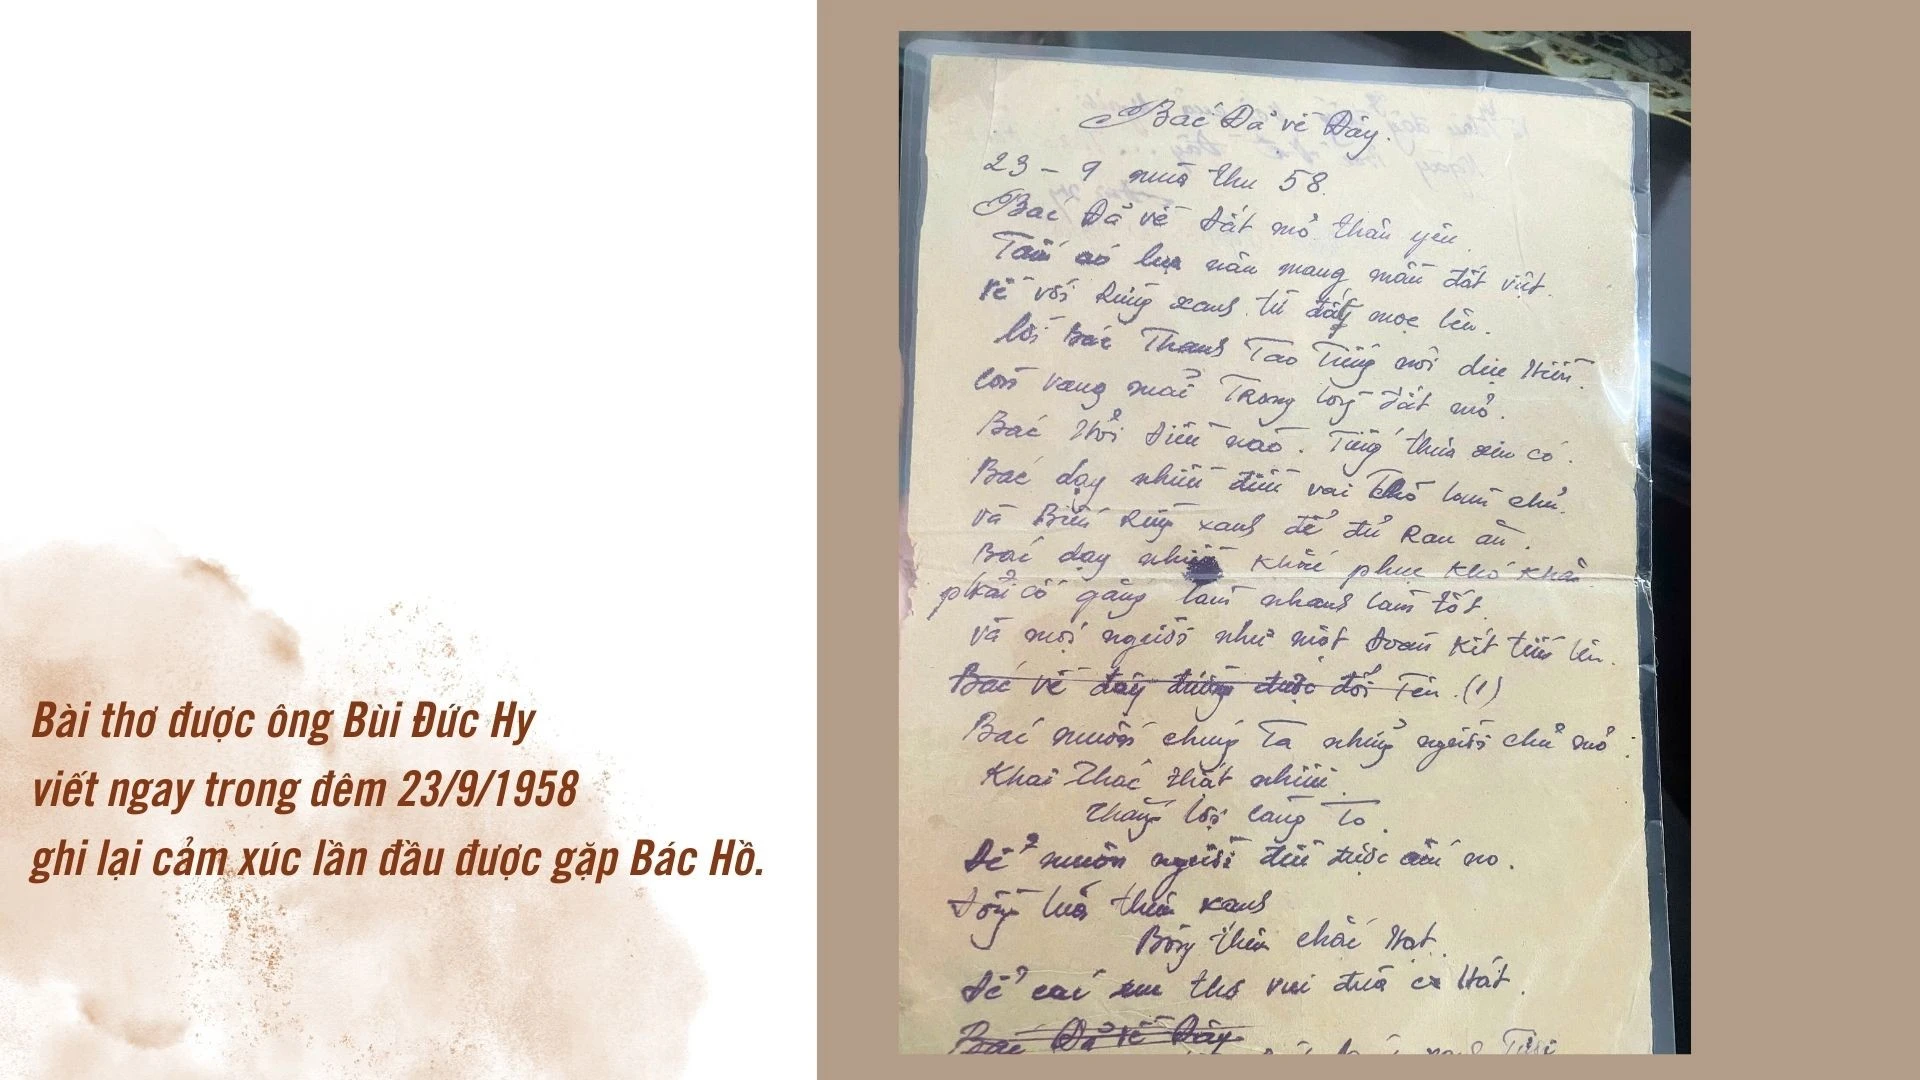 Bài thơ được ông Bùi Đức Hy
viết ngay trong đêm 23/9/1958
ghi lại cảm xúc lần đầu được gặp Bác Hồ.
Bác Đã về Đây.
23 - 9 mùa thu 58.
Bác Đã về Đất mỏ thân yêu.
Tấm áo lụa nâu mang mầu đất việt.
Về với Rừng xanh từ đấy mọc lên.
lời Bác Thanh Tao Tiếng nói dịu Hiền.
còn vang mãi Trong lòng Đất mỏ.
Bác Hỏi điều nào. Tiếng thưa xin có.
Bác dạy nhiều điều vai Thợ làm chủ.
và Biến Rừng xanh để đủ Rau ăn.
Bác dạy nhiều khắc phục khó khăn
phải cố gắng làm nhanh làm tốt.
và mọi người như một Đoàn kết tiến lên.
Bác về đây đường được đổi Tên. (1)
Bác muốn chúng Ta những người chủ mỏ:
Khai Thác thật nhiều.
Thắng lợi càng To.
Để muôn người đều được ấm no.
Đồng lúa thêm xanh
Bông thêm chắc Hạt.
Để các em thơ vui đùa ca Hát.
Bác Đã về Đây